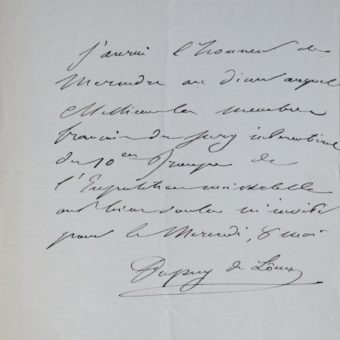 j'aurai l'honneur de
me rendre au diner auquel
Messieurs les membres
français du Jury international
du 10eme Groupe de
l'Exposition universelle
ont bien voulu m'inviter
pour le Mercredi, 8 mai
Dupuy de Lôme